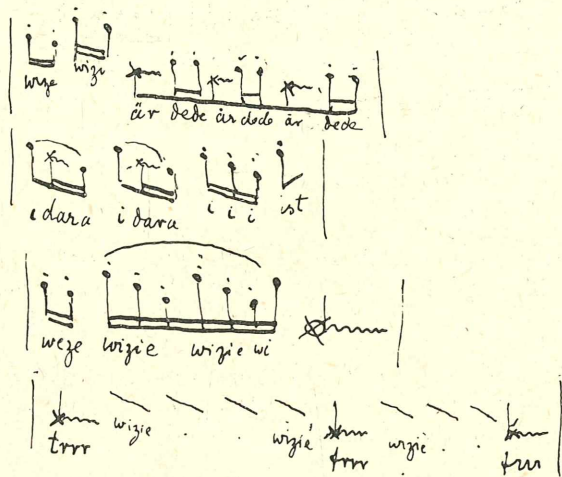 wize wizi
är dede är dede är dede
i dara i dara i i i ist
weze wizie wizie wi
trrr wizie wizie trrr wizie trrr